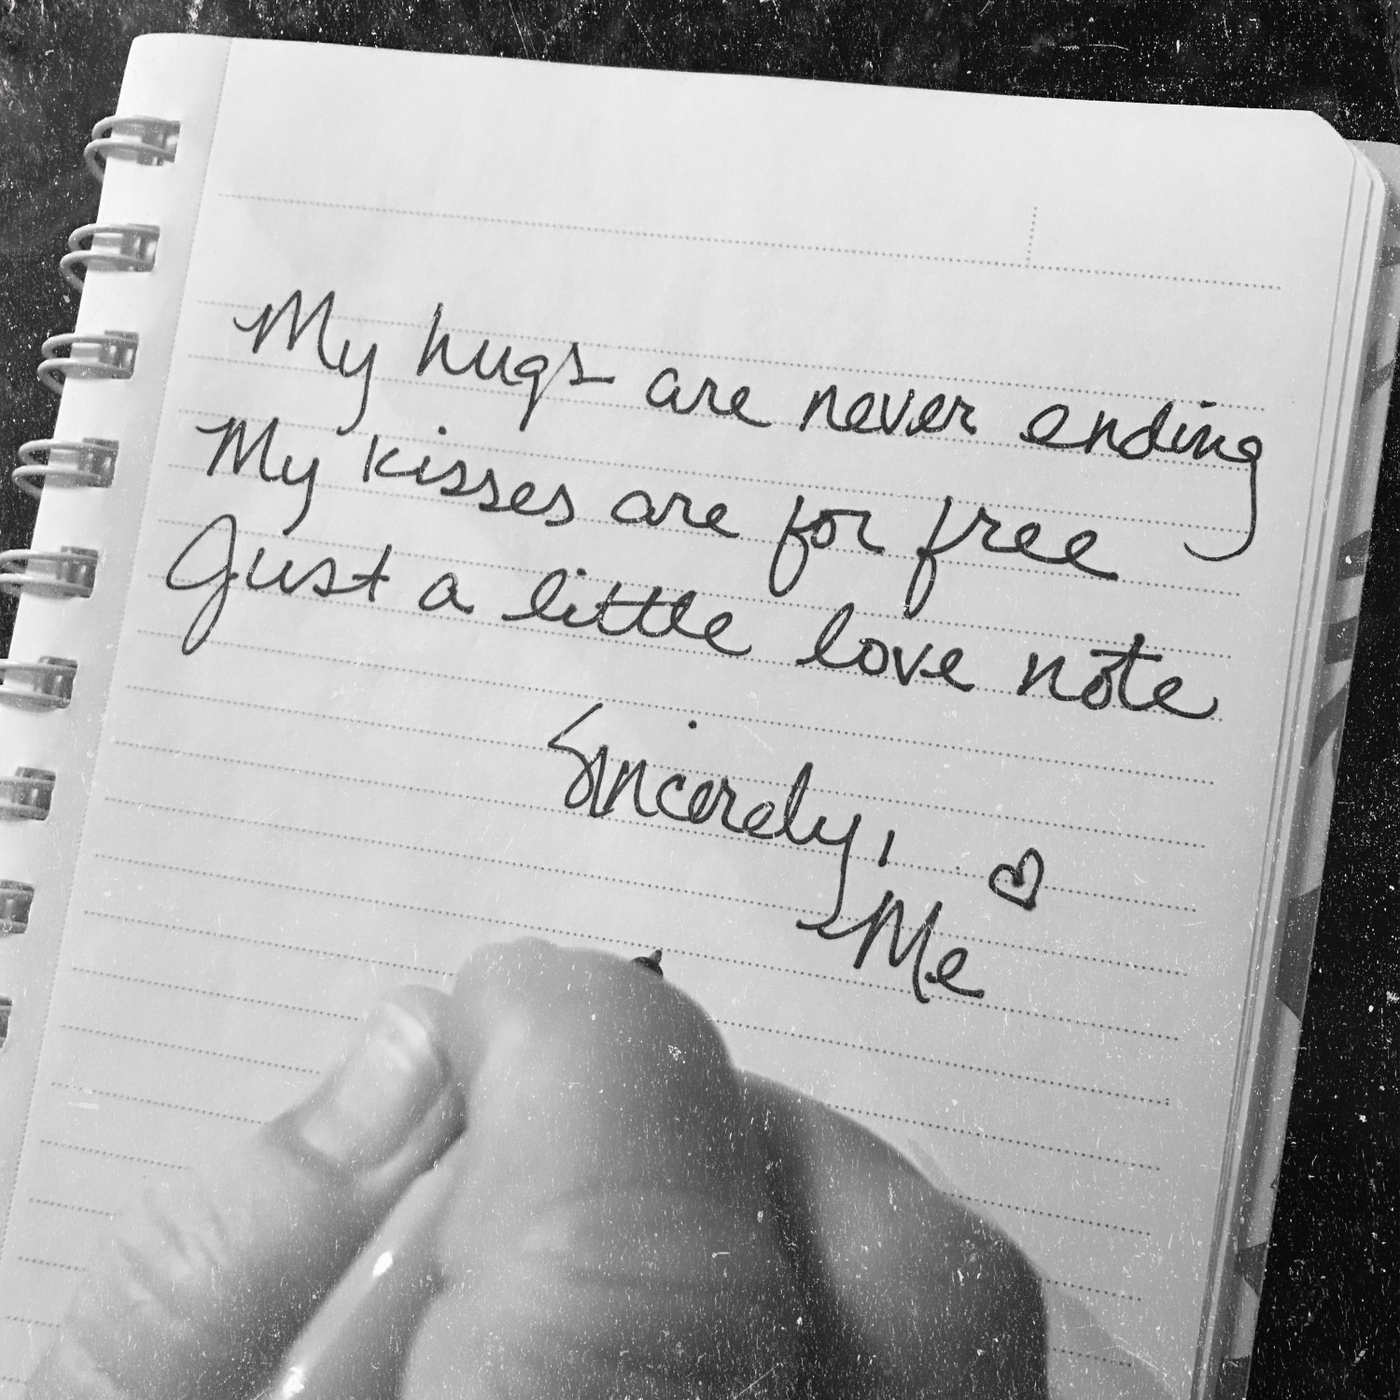 My hugs are never ending
My kisses are for free
Just a little love note
Sincerely,
Me